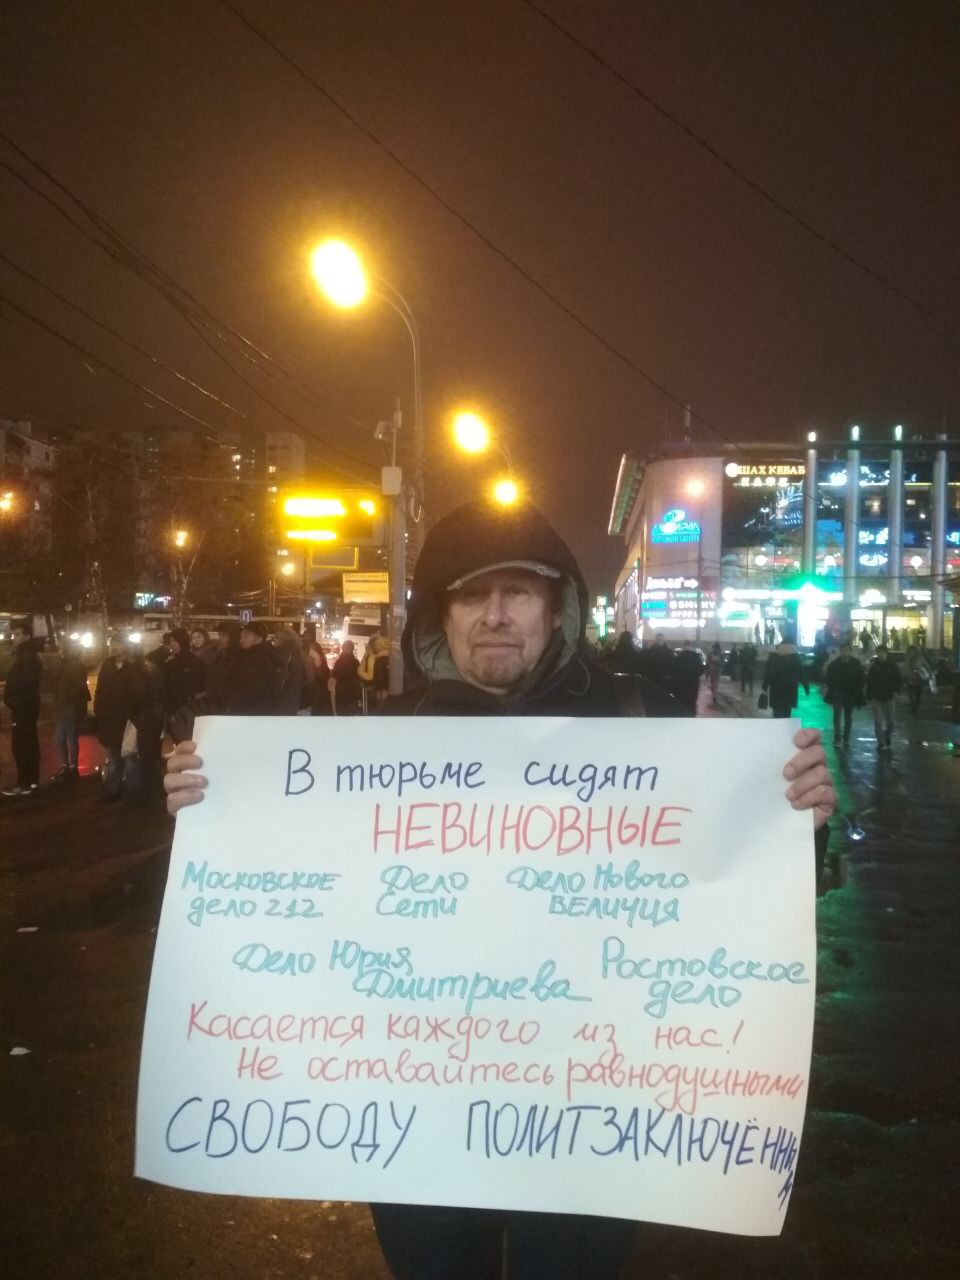 ШАХ КЕБАБ
КАФЕ
В тюрьме сидят
НЕВИНОВНЫЕ
Московское дело 212
Дело Сети
Дело Нового ВЕЛИЧИЯ
Дело Юрия Дмитриева
Ростовское дело
Касается каждого из нас!
Не оставайтесь равнодушными
СВОБОДУ ПОЛИТЗАКЛЮЧЁННЫМ